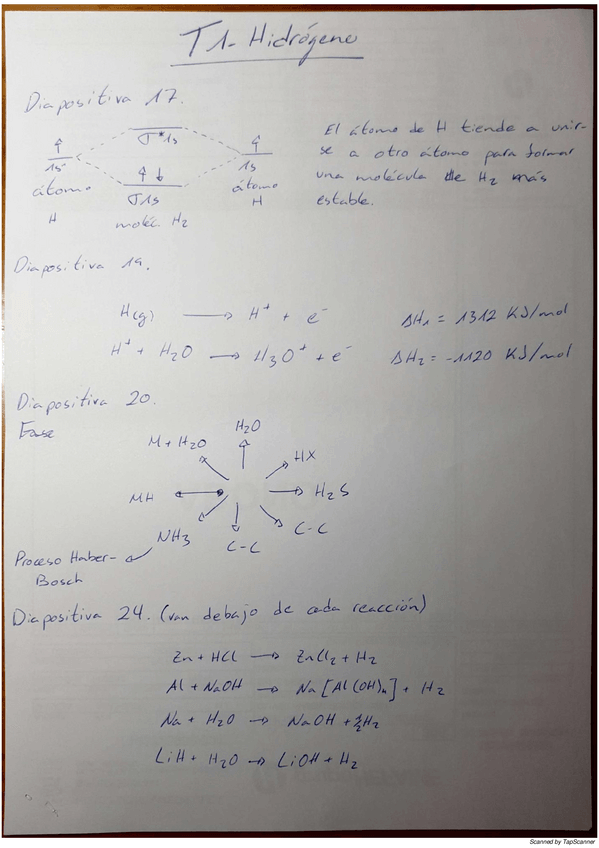 T1- Hidrógeno
Diapositiva 17.
σ*1s
1s
átomo
H
σ1s
moléc H2
1s
átomo
H
El átomo de H tiende a unir-
se a otro átomo para formar
una molécula de H2 más
estable.
Diapositiva 19.
H(g) → H+ + e- ΔH1 = 1312 KJ/mol
H+ + H2O → H3O+ + e- ΔH2 = -1120 KJ/mol
Diapositiva 20.
M + H2O H2O HX
MH H2S
NH3 C-C C-C
Proceso Haber-
Bosch
Diapositiva 24. (van debajo de cada reacción)
Zn + HCl → ZnCl2 + H2
Al + NaOH → Na[Al(OH)n] + H2
Na + H2O → NaOH + ½H2
LiH + H2O → LiOH + H2
Scanned by TapScanner